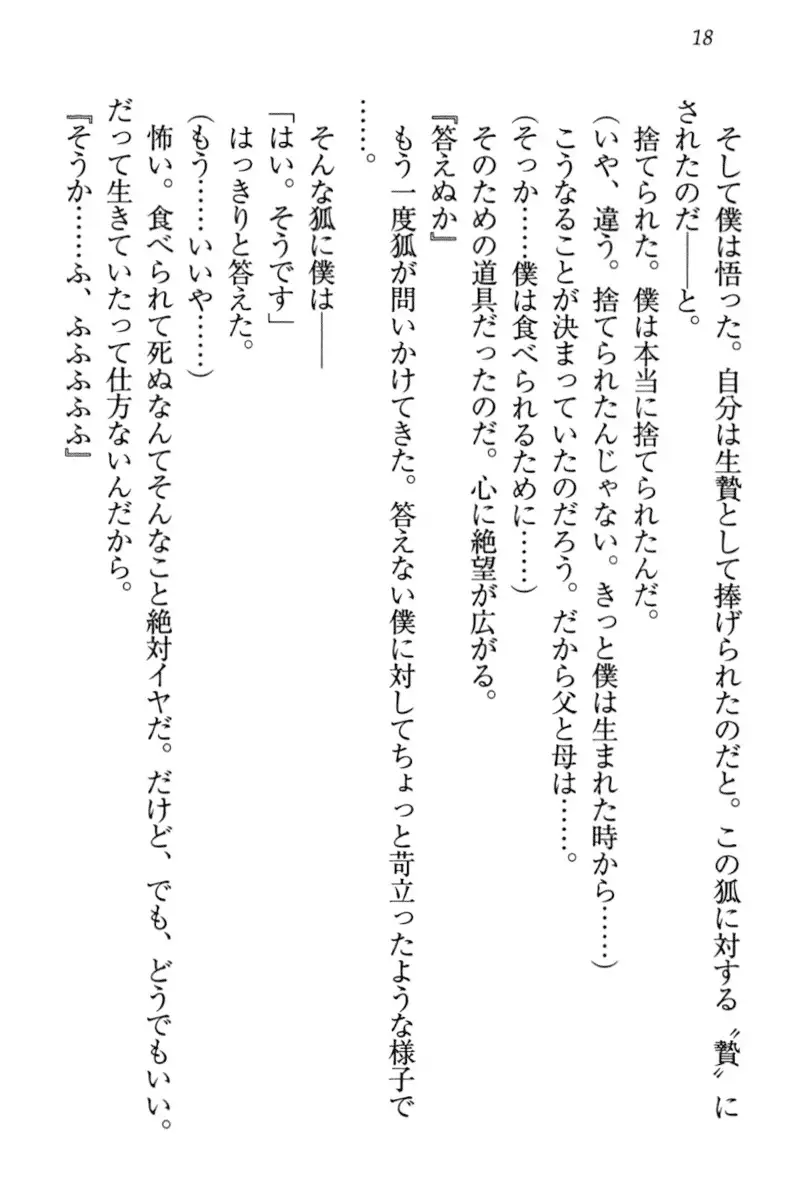 18
そして僕は悟った。自分は生贄として捧げられたのだと。この狐に対する〝贄〟に
されたのだ――と。
捨てられた。僕は本当に捨てられたんだ。
(いや、違う。捨てられたんじゃない。きっと僕は生まれた時から……)
こうなることが決まっていたのだろう。だから父と母は……。
(そっか……僕は食べられるために……)
そのための道具だったのだ。心に絶望が広がる。
『答えぬか』
もう一度狐が問いかけてきた。答えない僕に対してちょっと苛立ったような様子で
……。
そんな狐に僕は――
「はい。そうです」
はっきりと答えた。
(もう……いいや……)
怖い。食べられて死ぬなんてそんなこと絶対イヤだ。だけど、でも、どうでもいい。
だって生きていたって仕方ないんだから。
『そうか……ふ、ふふふふふ』